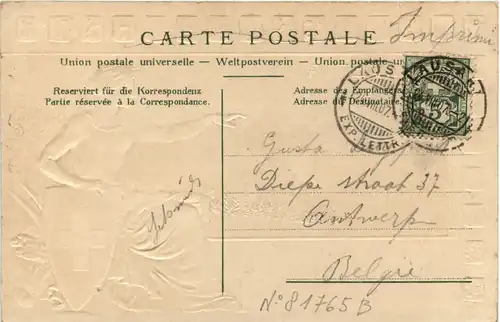 Imprimé
CARTE POSTALE
Union postale universelle — Weltpostverein — Union postale
Reserviert für die Korrespondenz
Partie réservée à la Correspondance.
Adresse des Empfängers
Adresse du Destinataire
LAUSANNE
EXP. LETTR.
Gusta
Diepe straat 37
Antwerp
Belgie
N° 81765 B